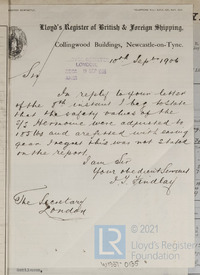 Lloyd's Register of British & Foreign Shipping,
Collingwood Buildings, Newcastle-on-Tyne.
10th Sept 1906
Sir
In reply to your letter
of the 8th instant I beg to state
that the safety valves of the
S/S Hermione were adjusted to
185 lbs and are fitted with easing
gear. I regret this was not stated
on the report
I am Sir
Your obedient Servant
J. T. Findlay
The Secretary
London
© 2021
Lloyd's Register
Foundation